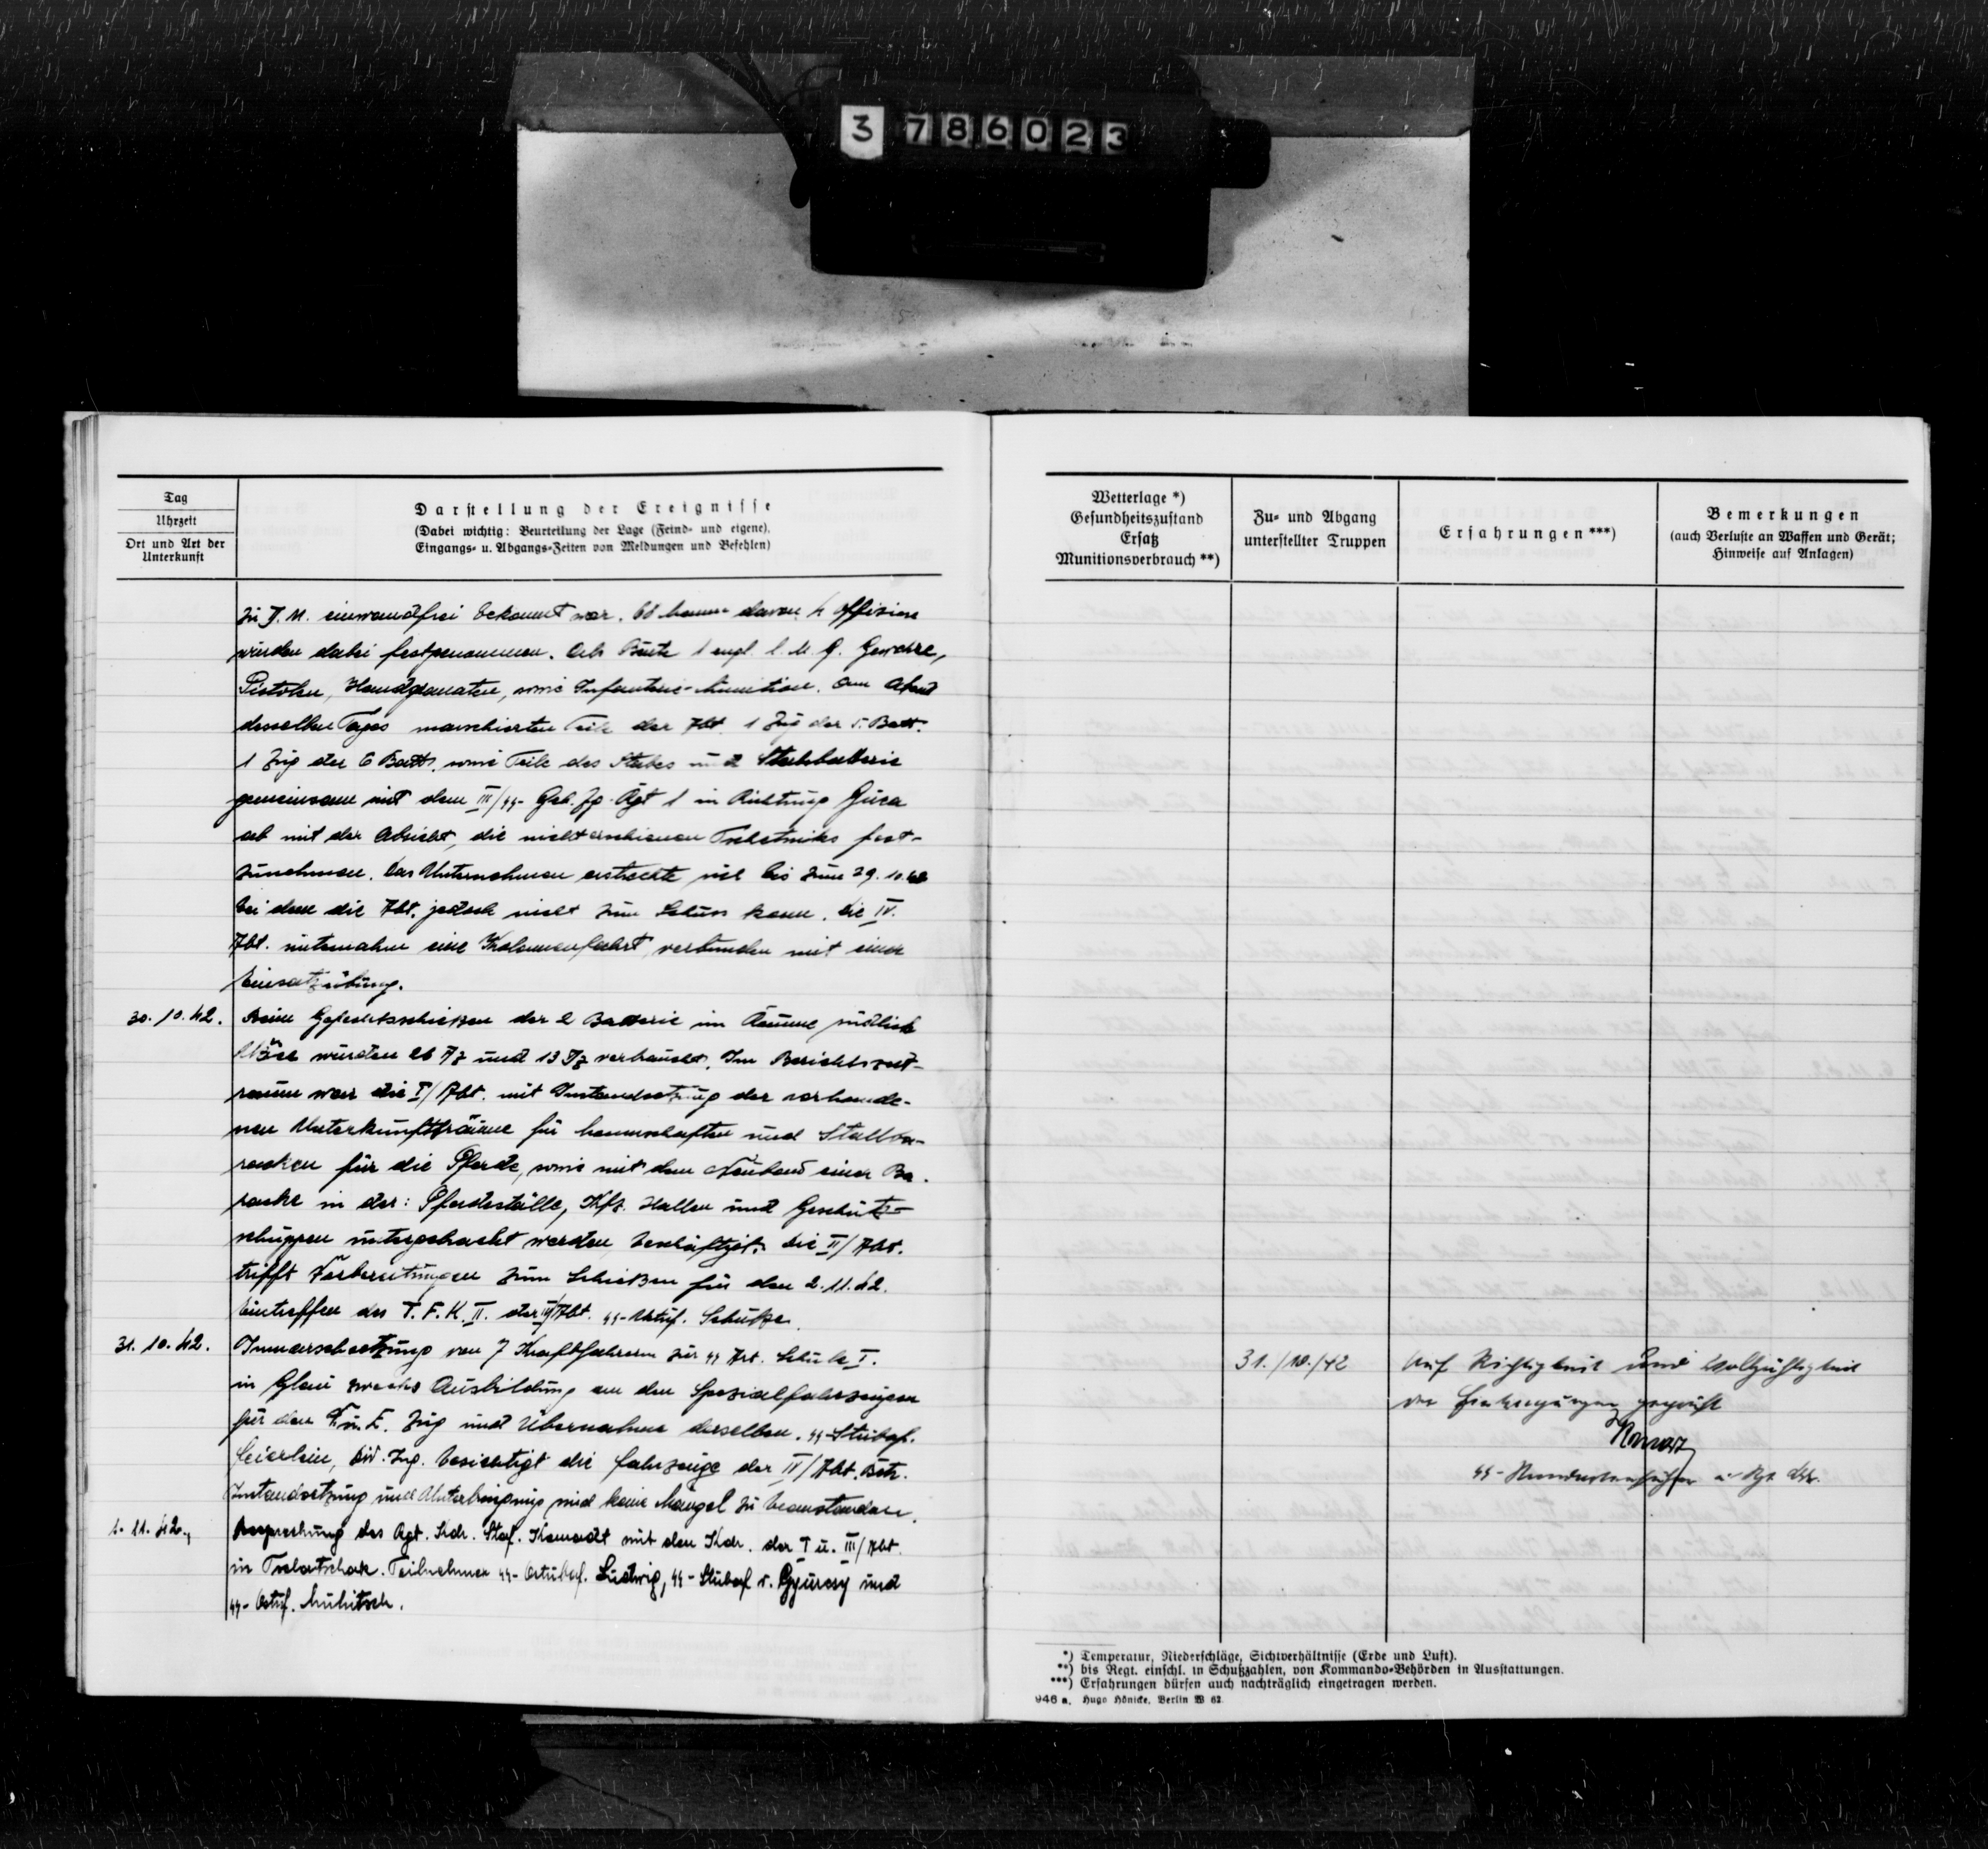 3 786023
Tag
Uhrzeit
Ort und Art der
Unterkunft
Darstellung der Ereignisse
(Dabei wichtig: Beurteilung der Lage (Feind- und eigene),
Eingangs- u. Abgangs-Zeiten von Meldungen und Befehlen)
zu D.M. einwandfrei bekannt war. 68 Mann davon 4 Offiziere
wurden dabei festgenommen. Als Beute 1 engl. l. M. G. Gewehre,
Pistolen, Handgranaten, sowie Infanterie-Munition. Am Abend
desselben Tages marschierten Teile der Abt. 1 Zug der 5. Batt.
1 Zug der 6 Battr. sowie Teile des Stabes und Stabsbatterie
gemeinsam mit dem III/SS- Geb. Jg. Rgt 1 in Richtung Guca
ab mit der Absicht, die nichterschienenen Tschetniks fest-
zunehmen. Das Unternehmen erstreckte sich bis zum 29.10.42
bei dem die Abt. jedoch nicht zum Schuss kam. Die IV.
Abt. unternahm eine Kolonnenfahrt verbunden mit einer
Einsatzübung.
30.10.42. Beim Gefechtsschießen der 2 Batterie im Raume südlich
wurden 26 Az und 13 Dz verbraucht. Im Berichtszeit-
raum war die I/Abt. mit Instandsetzung der vorhande-
nen Unterkunftsräume für Mannschaften und Stallba-
racken für die Pferde, sowie mit dem Neubau einer Ba-
racke in der: Pferdeställe, Kfz. Hallen und Geschütz-
schuppen untergebracht werden beschäftigt. Die II/Abt.
trifft Vorbereitungen zum Schießen für den 2.11.42.
Eintreffen des T.F.K. II. der IV/Abt. SS-Ustuf. Schütze.
31.10.42. Inmarschsetzung von 7 Kraftfahrern zur SS Art. Schule I.
in Glau zwecks Ausbildung an den Spezialfahrzeugen
für den Zug und Übernahme derselben. SS-Stubaf.
Div. Ing. besichtigt die Fahrzeuge der IV/Abt. Betr.
Instandsetzung und Unterbringung sind keine Mängel zu beanstanden.
1.11.42. Besprechung des Rgt. Kdr. Staf. mit den Kdr. der I u. III/Abt.
in Tschatschak. Teilnehmer SS-Ostubaf. Ludwig, SS-Stubaf v. Gyurcsy und
SS-Ostuf.
Wetterlage *)
Gesundheitszustand
Ersatz
Munitionsverbrauch **)
Zu- und Abgang
unterstellter Truppen
Erfahrungen ***)
Bemerkungen
(auch Verluste an Waffen und Gerät;
Hinweise auf Anlagen)
31./10./42 Auf Richtigkeit und Vollzähligkeit
der Eintragungen geprüft
SS-
*) Temperatur, Niederschläge, Sichtverhältnisse (Erde und Luft).
**) bis Regt. einschl. in Schußzahlen, von Kommando-Behörden in Ausstattungen.
***) Erfahrungen dürfen auch nachträglich eingetragen werden.
946 a. Hugo Hönicke, Berlin W 62